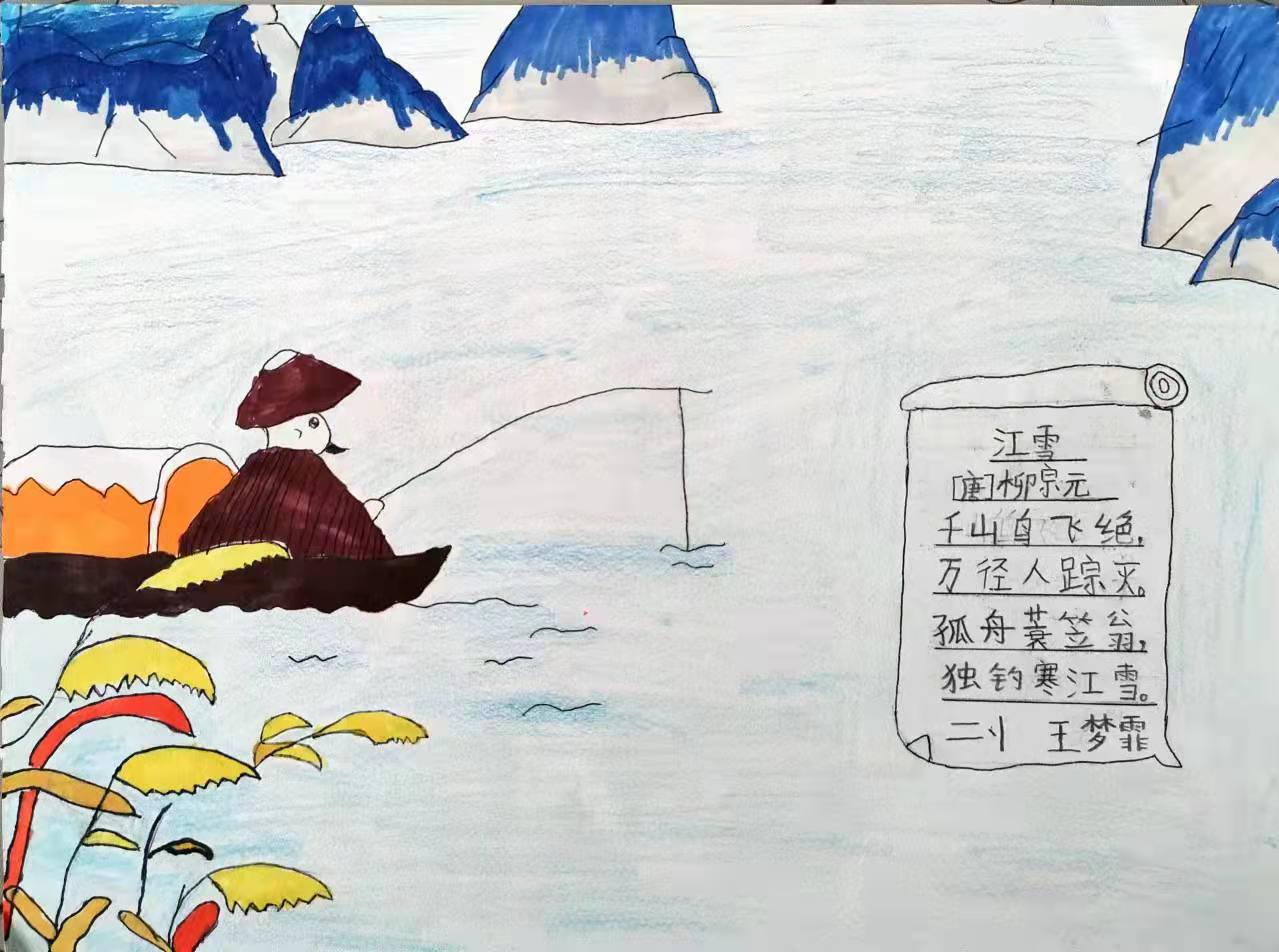 江雪
[唐]柳宗元
千山自飞绝,
万径人踪灭。
孤舟蓑笠翁,
独钓寒江雪。
二刂 王梦霏